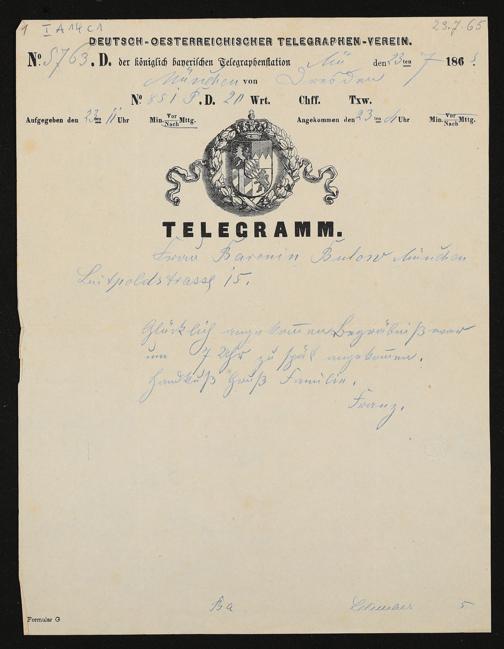 1 I A 14 c 1 23.7 65
DEUTSCH-OESTERREICHISCHER TELEGRAPHEN-VEREIN.
No. 5763. D. der königlich bayerischen Telegraphenstation Mü den 23ten 7 186
München von Dresden
No 851 F. D. 20 Wrt. Chff. Txw.
Aufgegeben den 23ten 11 Uhr Min. Vor/Nach Mttg. Angekommen den 23ten Uhr Min. Vor/Nach Mttg.
TELEGRAMM.
Frau Baronin Bulow München
Luitpoldstrasse 15.
Glücklich angekommen Begräbniß war
um 7 Uhr zu spät angekommen.
Handkuß Gruß Familie.
Franz.
Ba 5
Formular G